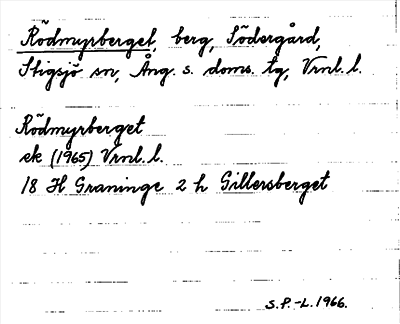 Rödmyrberget, berg, Södergård,
Stigsjö sn, Ång. s. doms. tg, Vrnl. l.
Rödmyrberget
ek (1965) Vrnl. l.
18 H Graninge 2 h Gillersberget
S.P.-L. 1966.